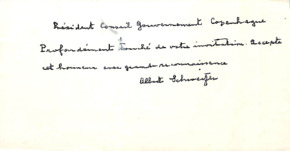 Président Conseil Gouvernement Copenhague
Profondément touché de votre invitation. Accepte
cet honneur avec grande reconnaissance
Albert Schweitzer